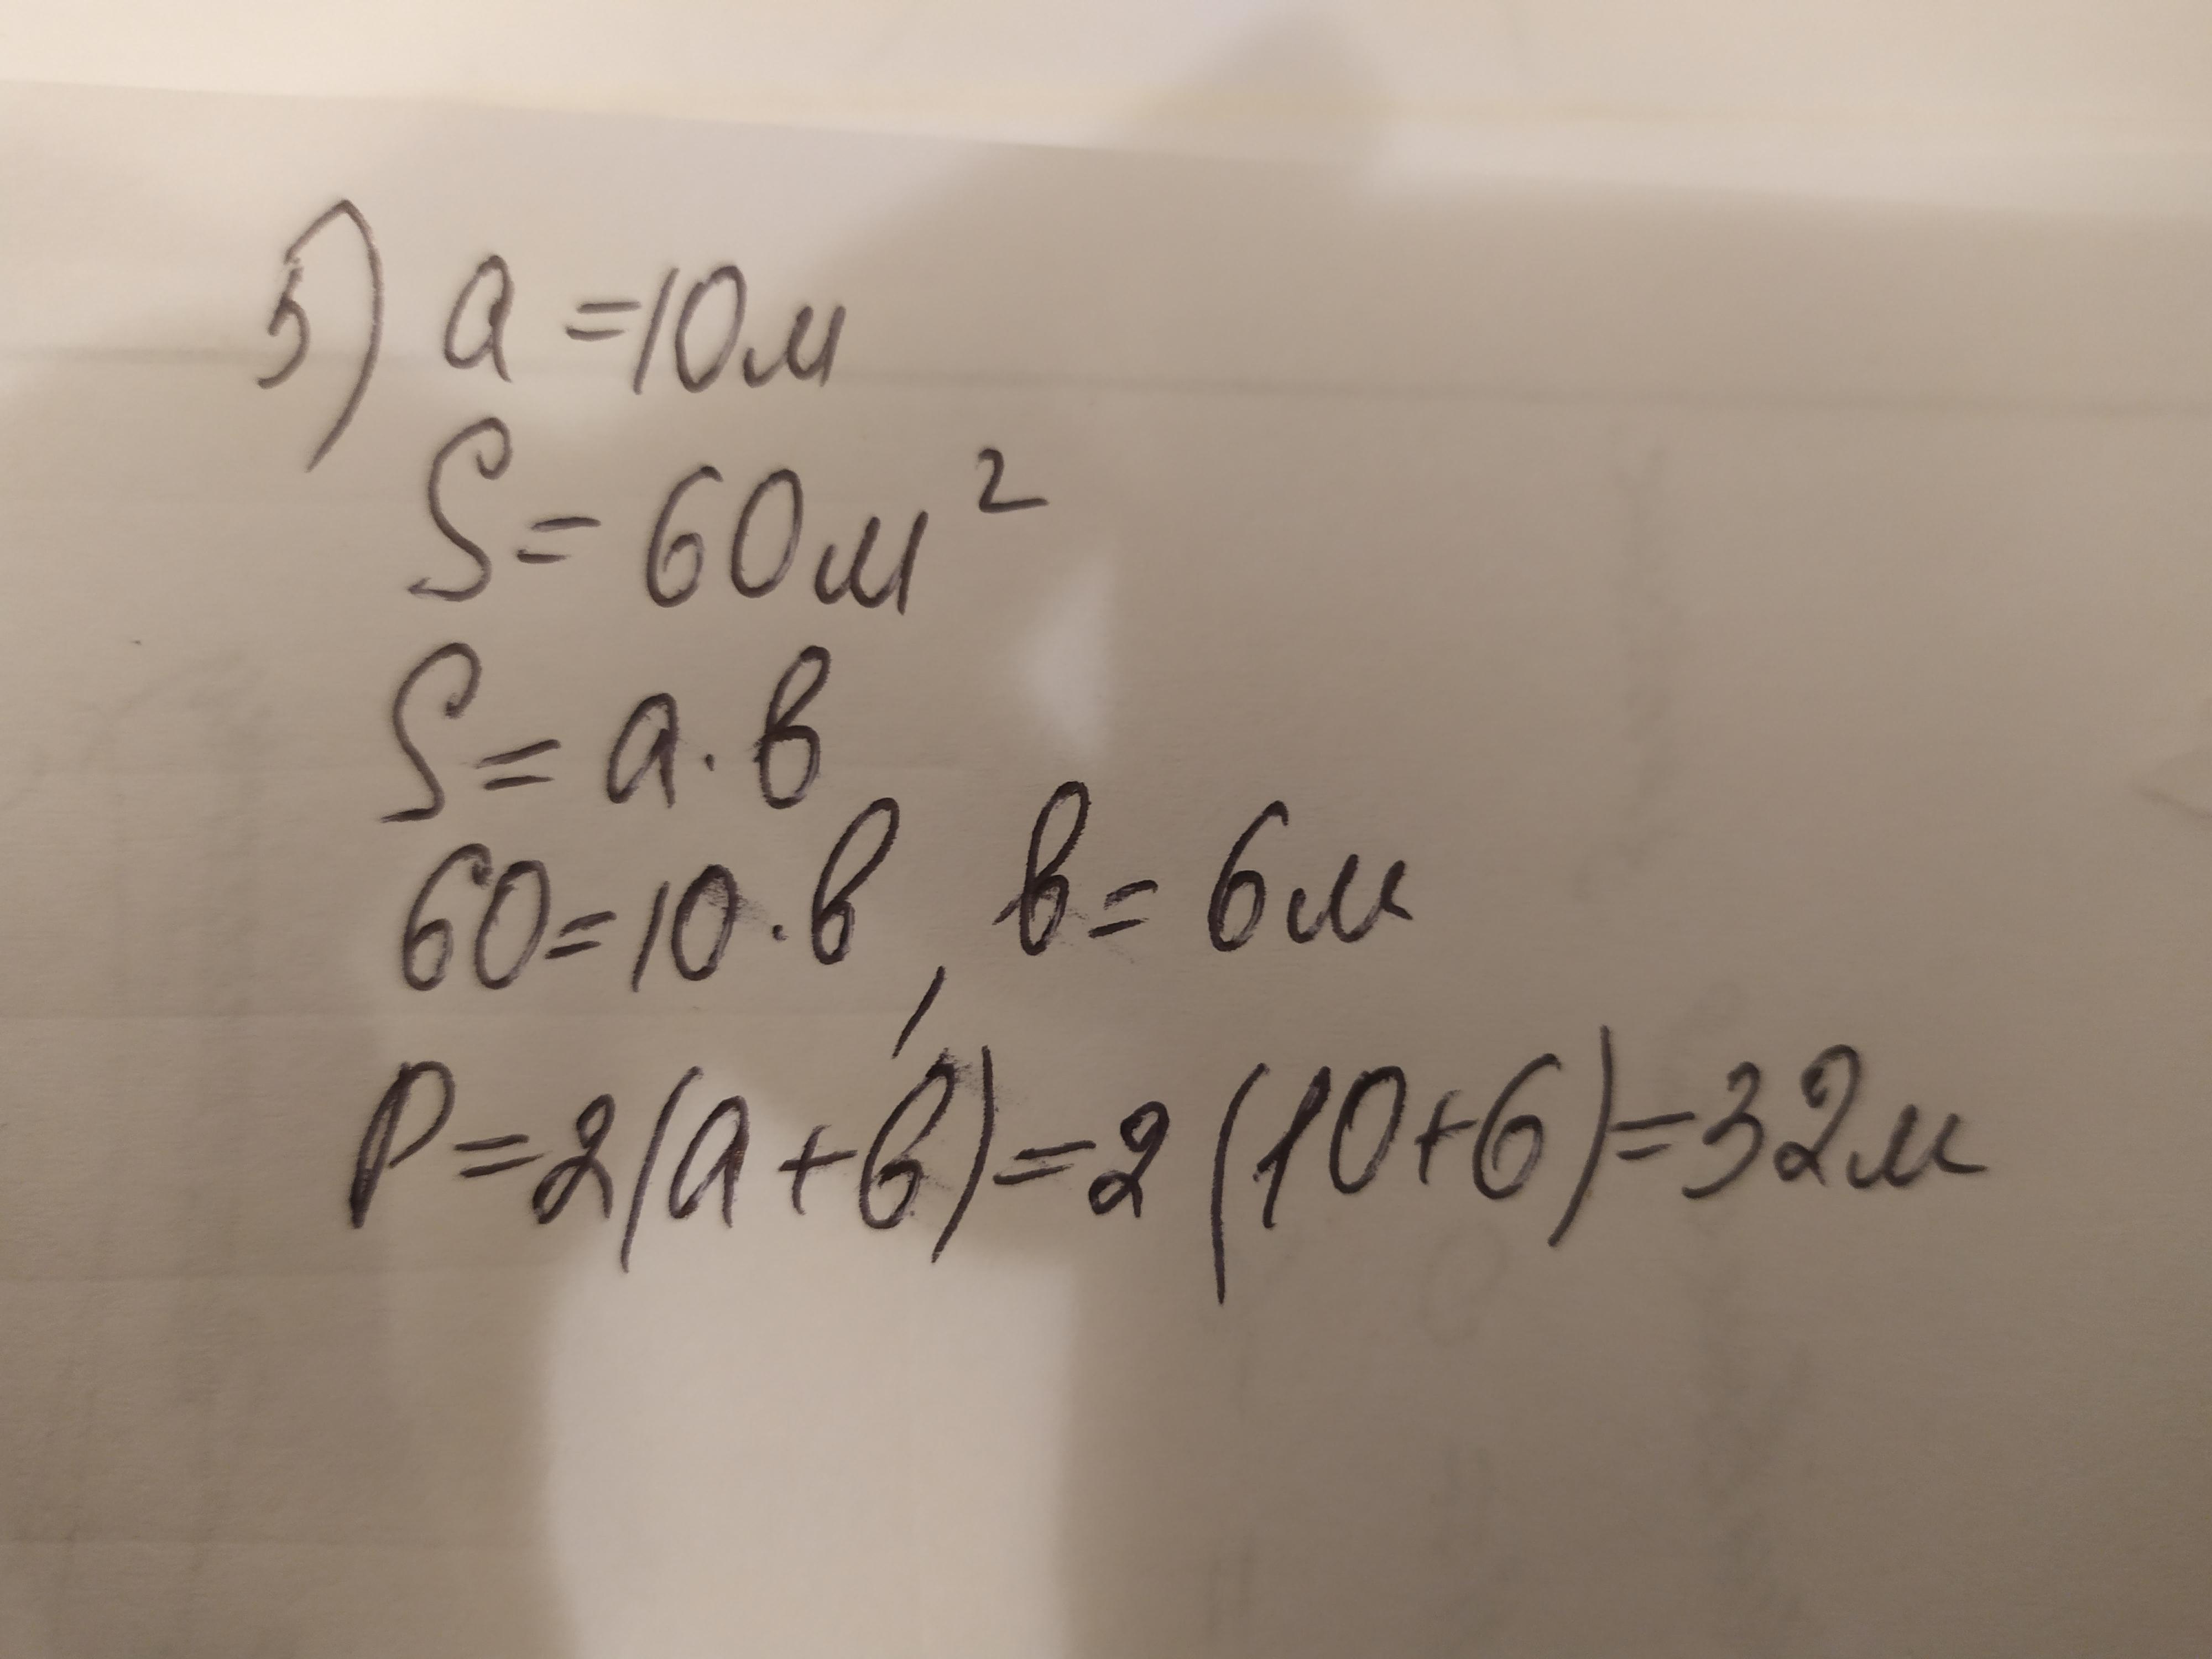 5) a = 10м
S = 60м²
S = a · в
60 = 10 · в, в = 6м
P = 2(a + в) = 2(10 + 6) = 32м